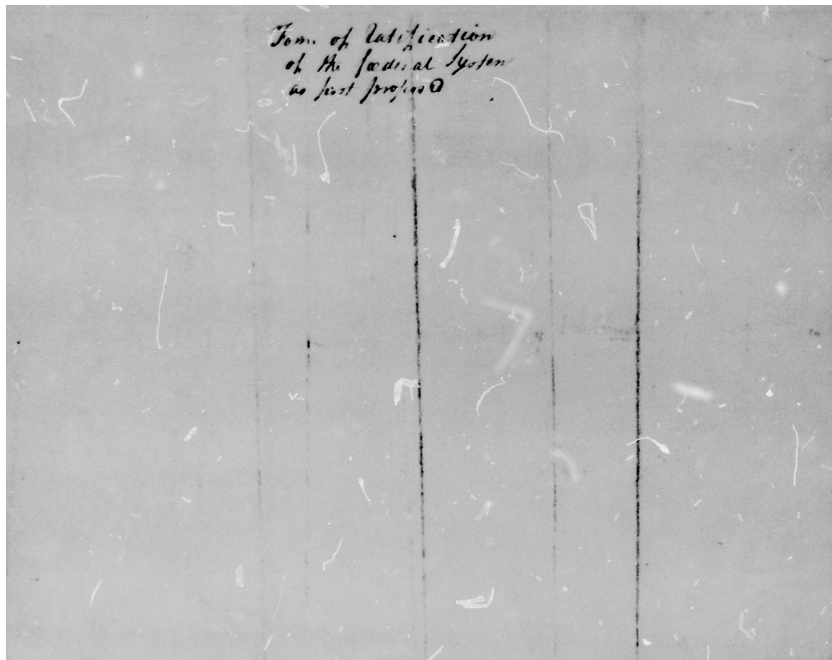 Form of Ratification
of the fœderal System
as first propos'd